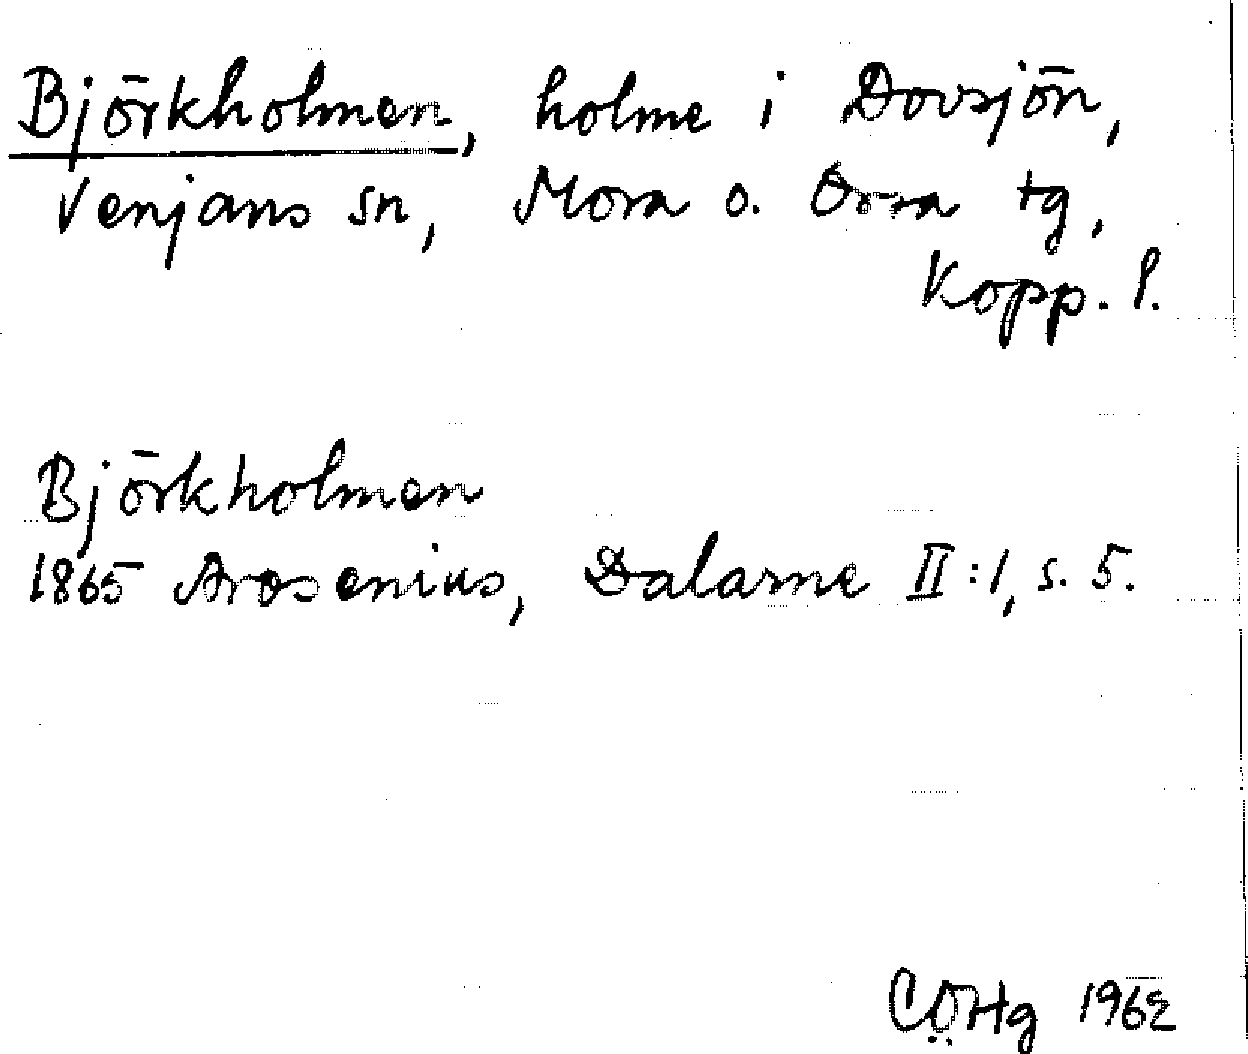 Björkholmen, holme i Dovsjön,
Venjans sn, Mora o. Orsa tg,
Kopp. l.
Björkholmen
1865 Arosenius, Dalarne II:1, s. 5.
1962